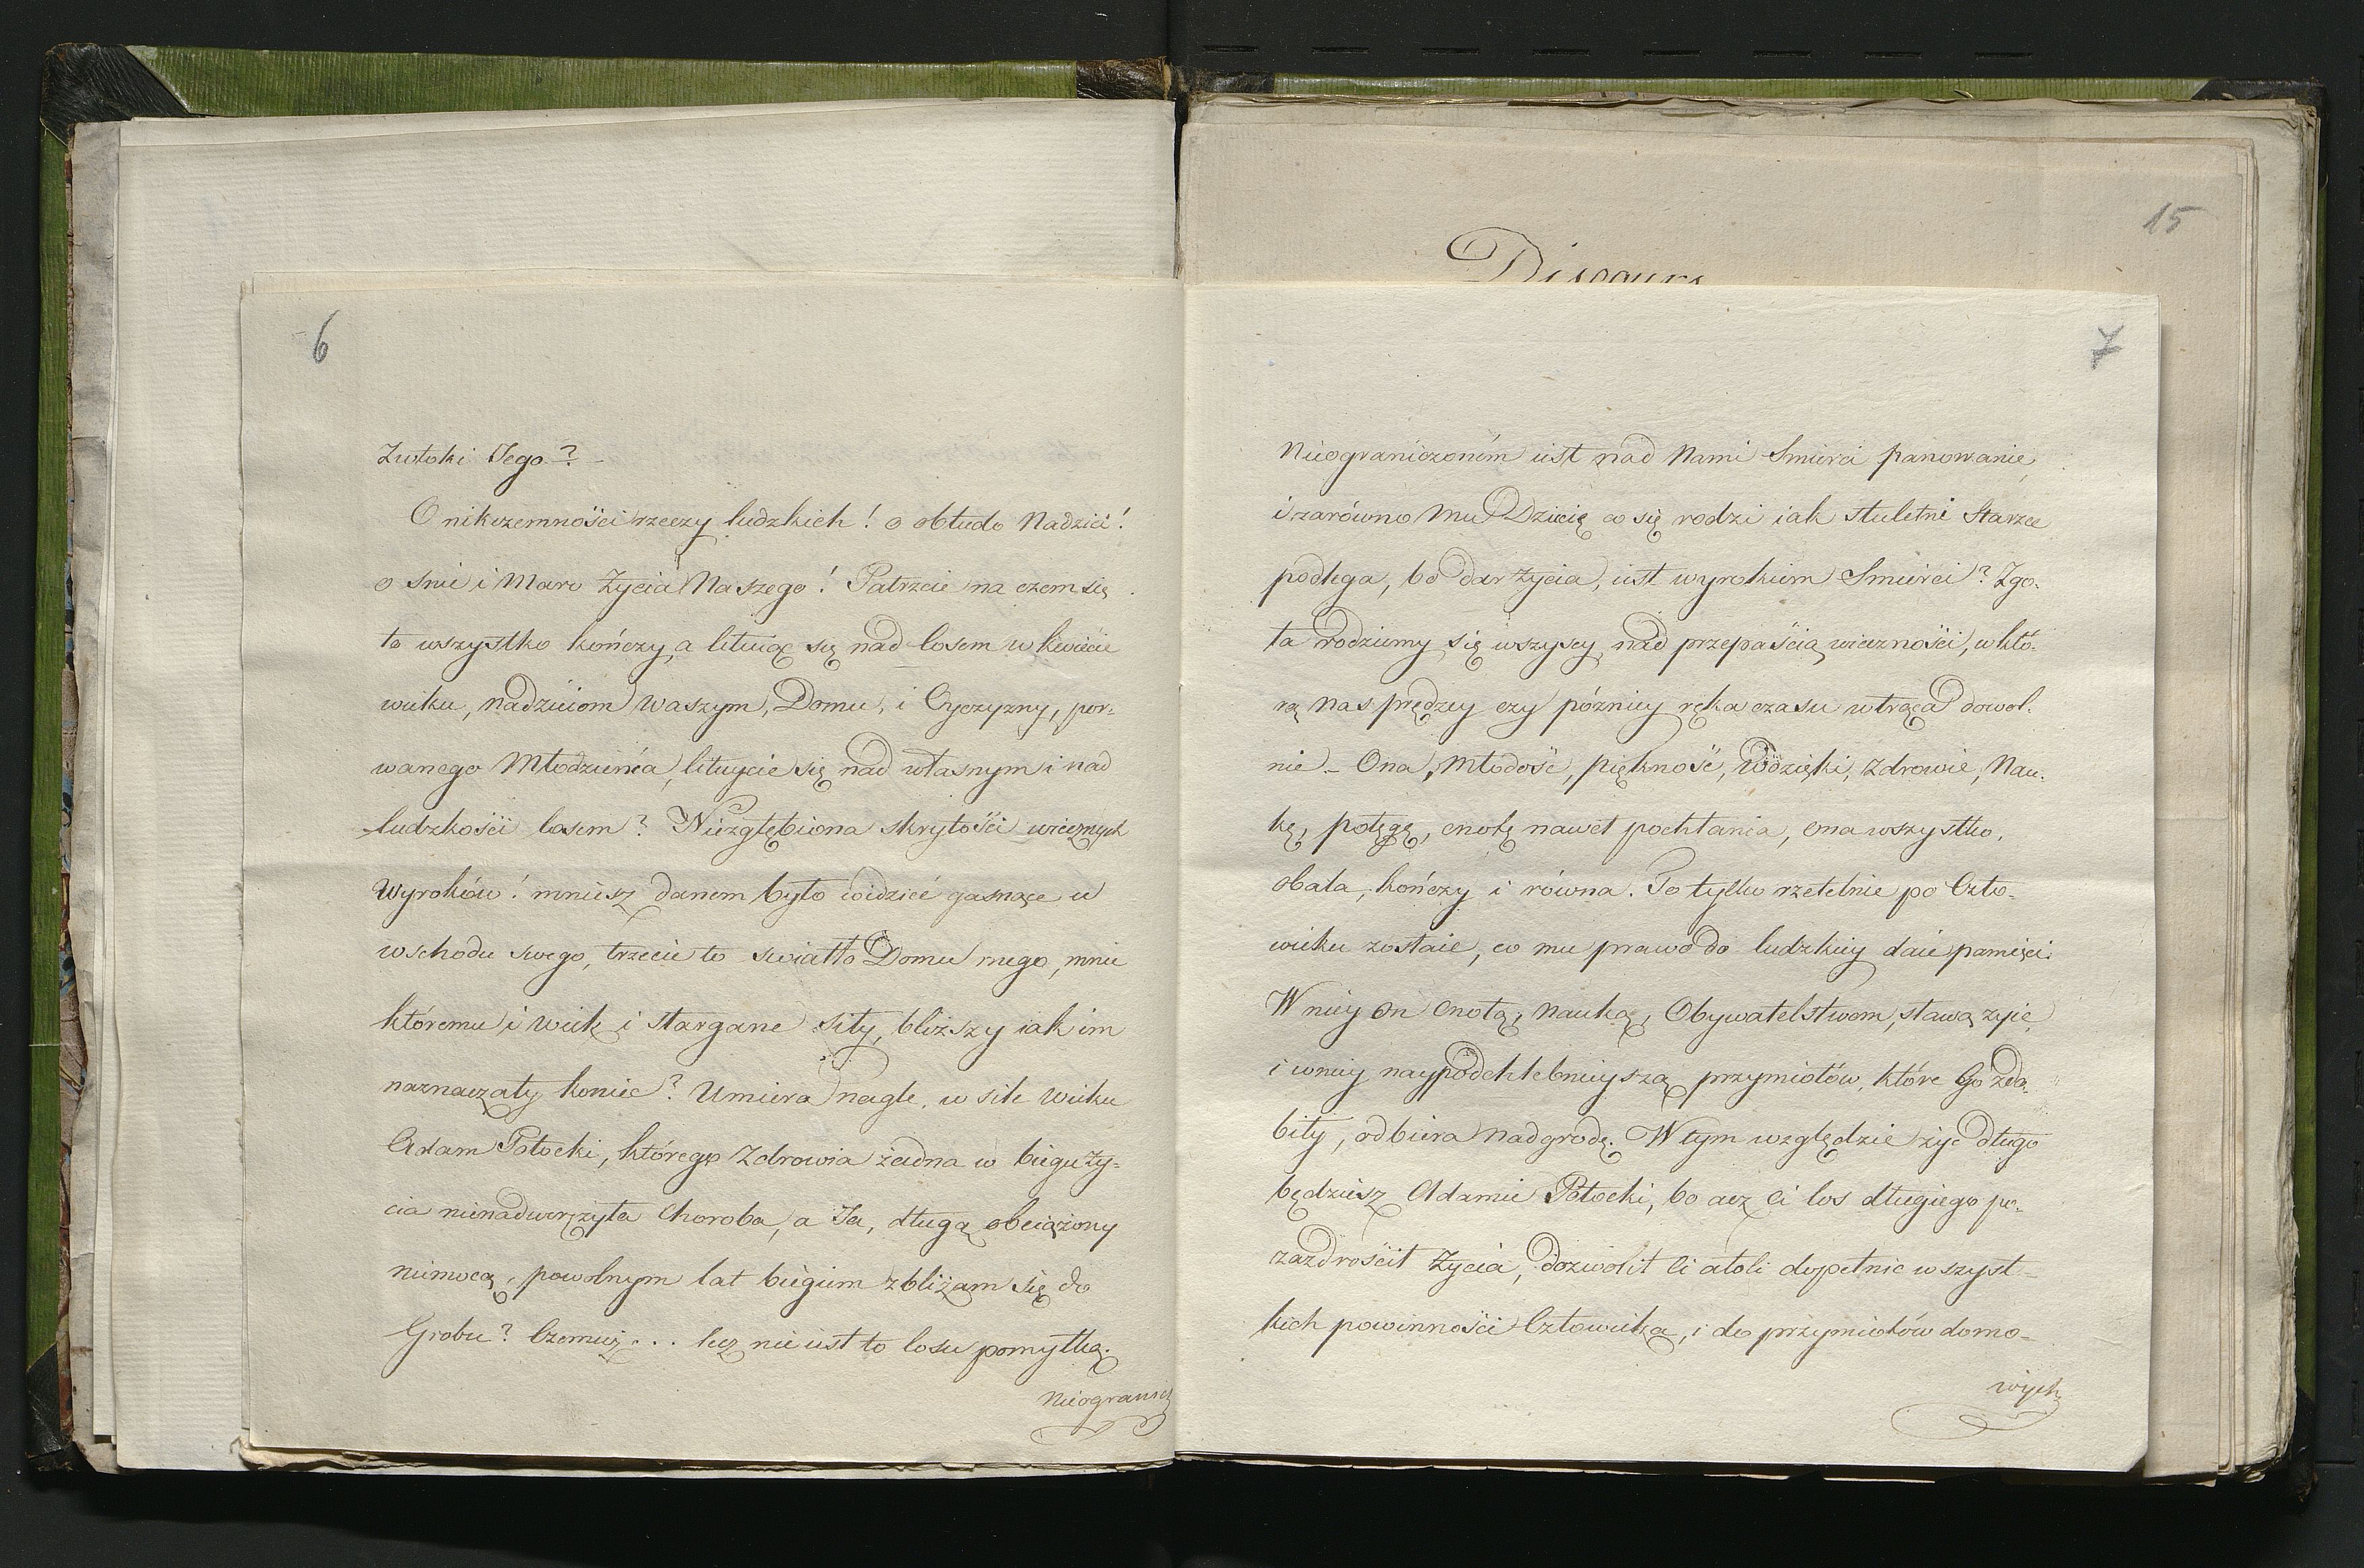 6
Zwłoki Jego? –
O nikczemności rzeczy ludzkich! o obłudo Nadziei!
o śnie i Maro Życia Naszego! Patrzcie na czem się
to wszystko kończy, a lituiąc się nad losem w kwiecie
wieku, nadzieiom waszym, Domu, i Oyczyzny, por-
wanego Młodzieńca, lituycie się nad własnym i nad
ludzkości losem? Niezgłębiona skrytości wiecznych
Wyroków! mnież danem było widzieć gasnące u
wschodu swego, trzecie to światło Domu mego, mnie
któremu i wiek i stargane siły, bliższy iak im
naznaczały koniec? Umiera nagle, w sile wieku
Adam Potocki, którego Zdrowia żadna w biegu ży-
cia nienadweręzyła Choroba, a Ja, długą obciążony
niemocą, powolnym lat biegiem zbliżam się do
Grobu? Czemuż... lecz nie iest to losu pomyłką.
Nieogranicz
15
Discours
7
Nieograniczoném iest nad Nami Śmierci panowanie,
i zarówno Mu Dziecię co się rodzi iak stuletni Starzec
podlega, bo dar życia, iest wyrokiem Śmierci? Zgo-
ła rodziemy się wszyscy nad przepaścią wieczności, w któ-
rą nas prędzey czy pózniey ręka czasu wtrąca dowol-
nie – Ona, Młodość, piękność, wdzięki, zdrowie, Nau-
kę, potęgę, cnotę nawet pochłania, ona wszystko,
obala, kończy i równa. To tylko rzetelnie po Czło-
wieku zostaie, co mu prawo do ludzkiey daie pamięci.
W niey on cnotą, nauką, Obywatelstwem, sławą zyie,
i w niey naypodchlebnieyszą przymiotów, które Go zdo-
biły, odbiera nadgrodę. W tym względzie żyć długo
będziesz Adamie Potocki, bo acz Ci los długiego po-
zazdrościł Życia, dozwolił Ci atoli dopełnić wszyst-
kich powinności Człowieka, i do przymiotów domo-
wych